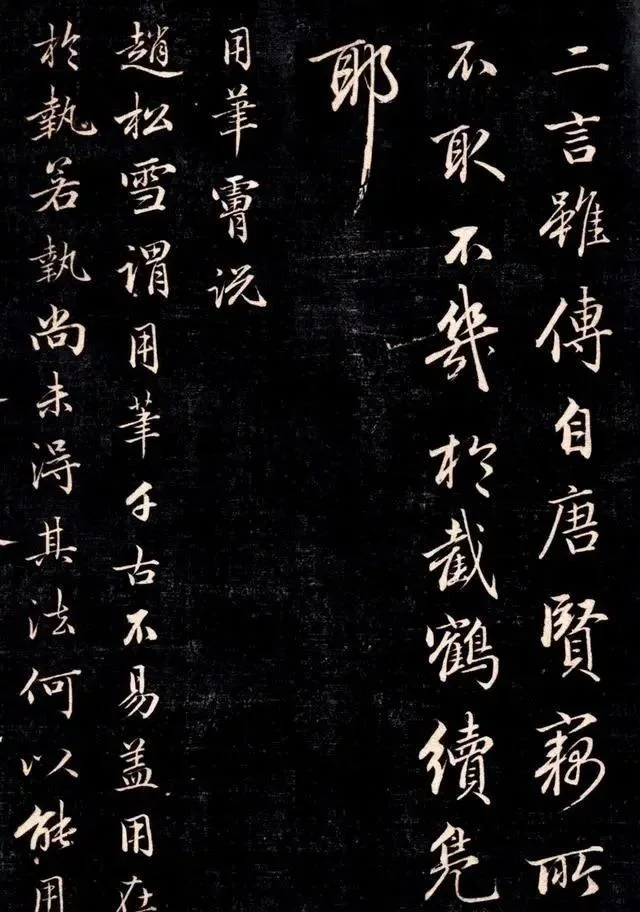 二言雖傳自唐賢竊所
不取不幾於截鶴續鳧
耶
用筆説
趙松雪謂用筆千古不易蓋用在
於執若執尚未得其法何以能用